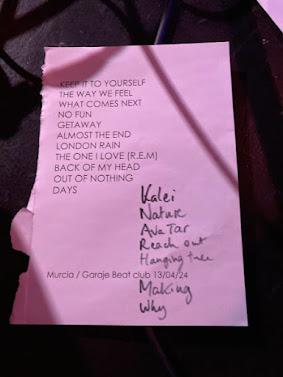 KEEP IT TO YOURSELF
THE WAY WE FEEL
WHAT COMES NEXT
NO FUN
GETAWAY
ALMOST THE END
LONDON RAIN
THE ONE I LOVE (R.E.M)
BACK OF MY HEAD
OUT OF NOTHING
DAYS
Kalei
Nature
Ava Tar
Reach out
Hanging tree
Murcia / Garaje Beat club 13/04/24
Making
Why